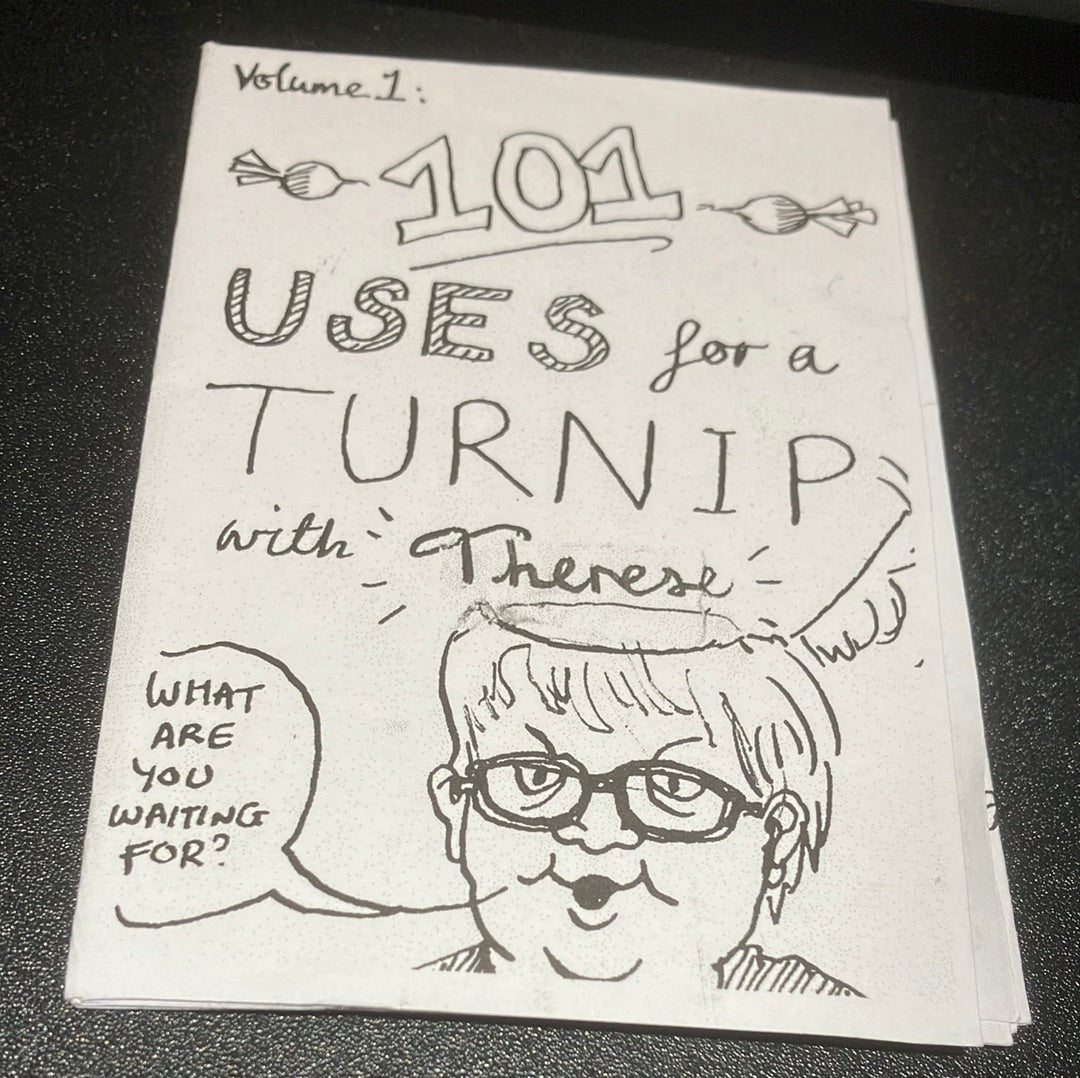 Volume 1:
101
USES for a
TURNIP
with Therese
WHAT
ARE
YOU
WAITING
FOR?